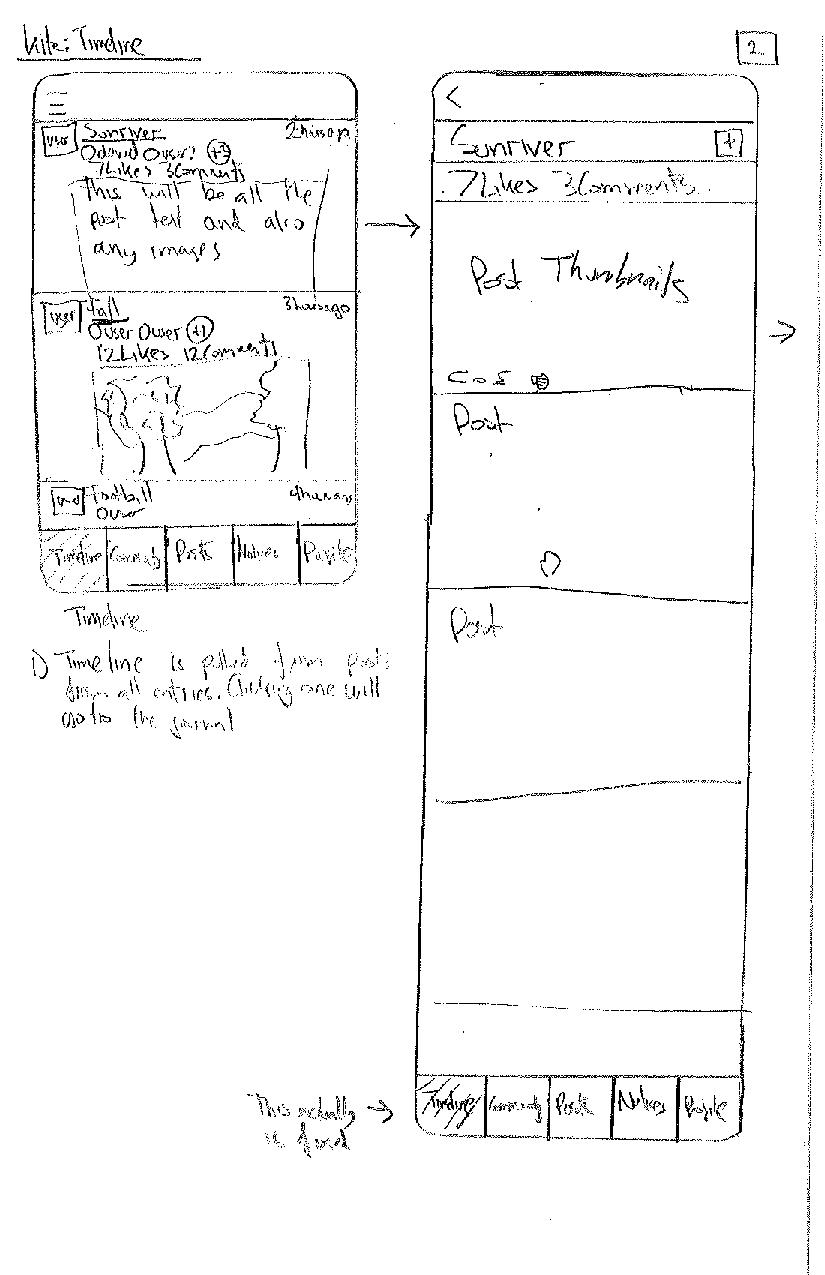 Kite: Timeline
2
user
Sunriver
2 hours ago
Ouser? +3
7 Likes 3 Comments
This will be all the
post text and also
any images
user
Fall
3 hours ago
Ouser Ouser +1
12 Likes 12 Comments
Football
Ouser
Timeline
Posts
Notices
Profile
Timeline
1) Timeline is pulled from posts
from all entries. Clicking one will
go to the journal
<
Sunriver
+
7 Likes 3 Comments
Post Thumbnails
Post
Post
This actually
is fixed
Timeline
Community
Posts
Notices
Profile